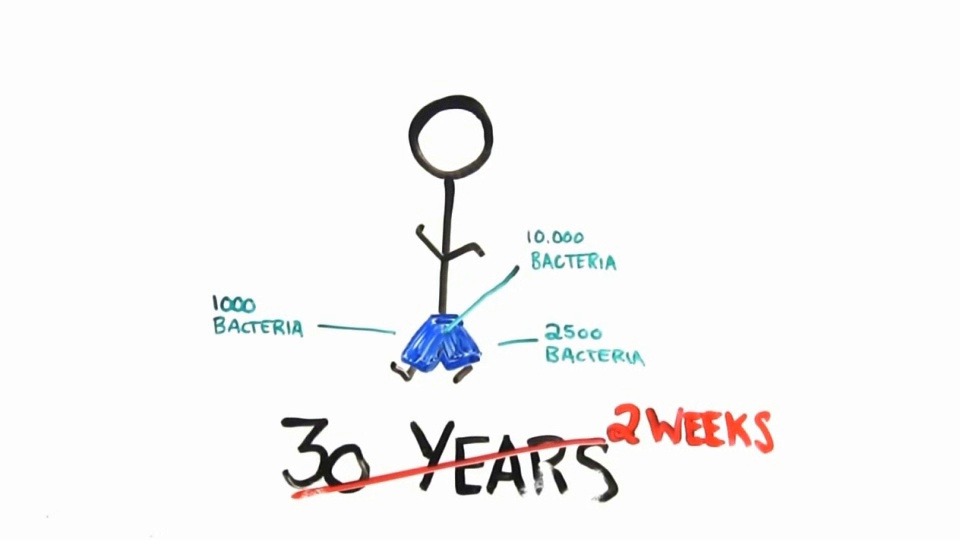 10.000
BACTERIA
1000
BACTERIA
2500
BACTERIA
30 YEARS
2 WEEKS